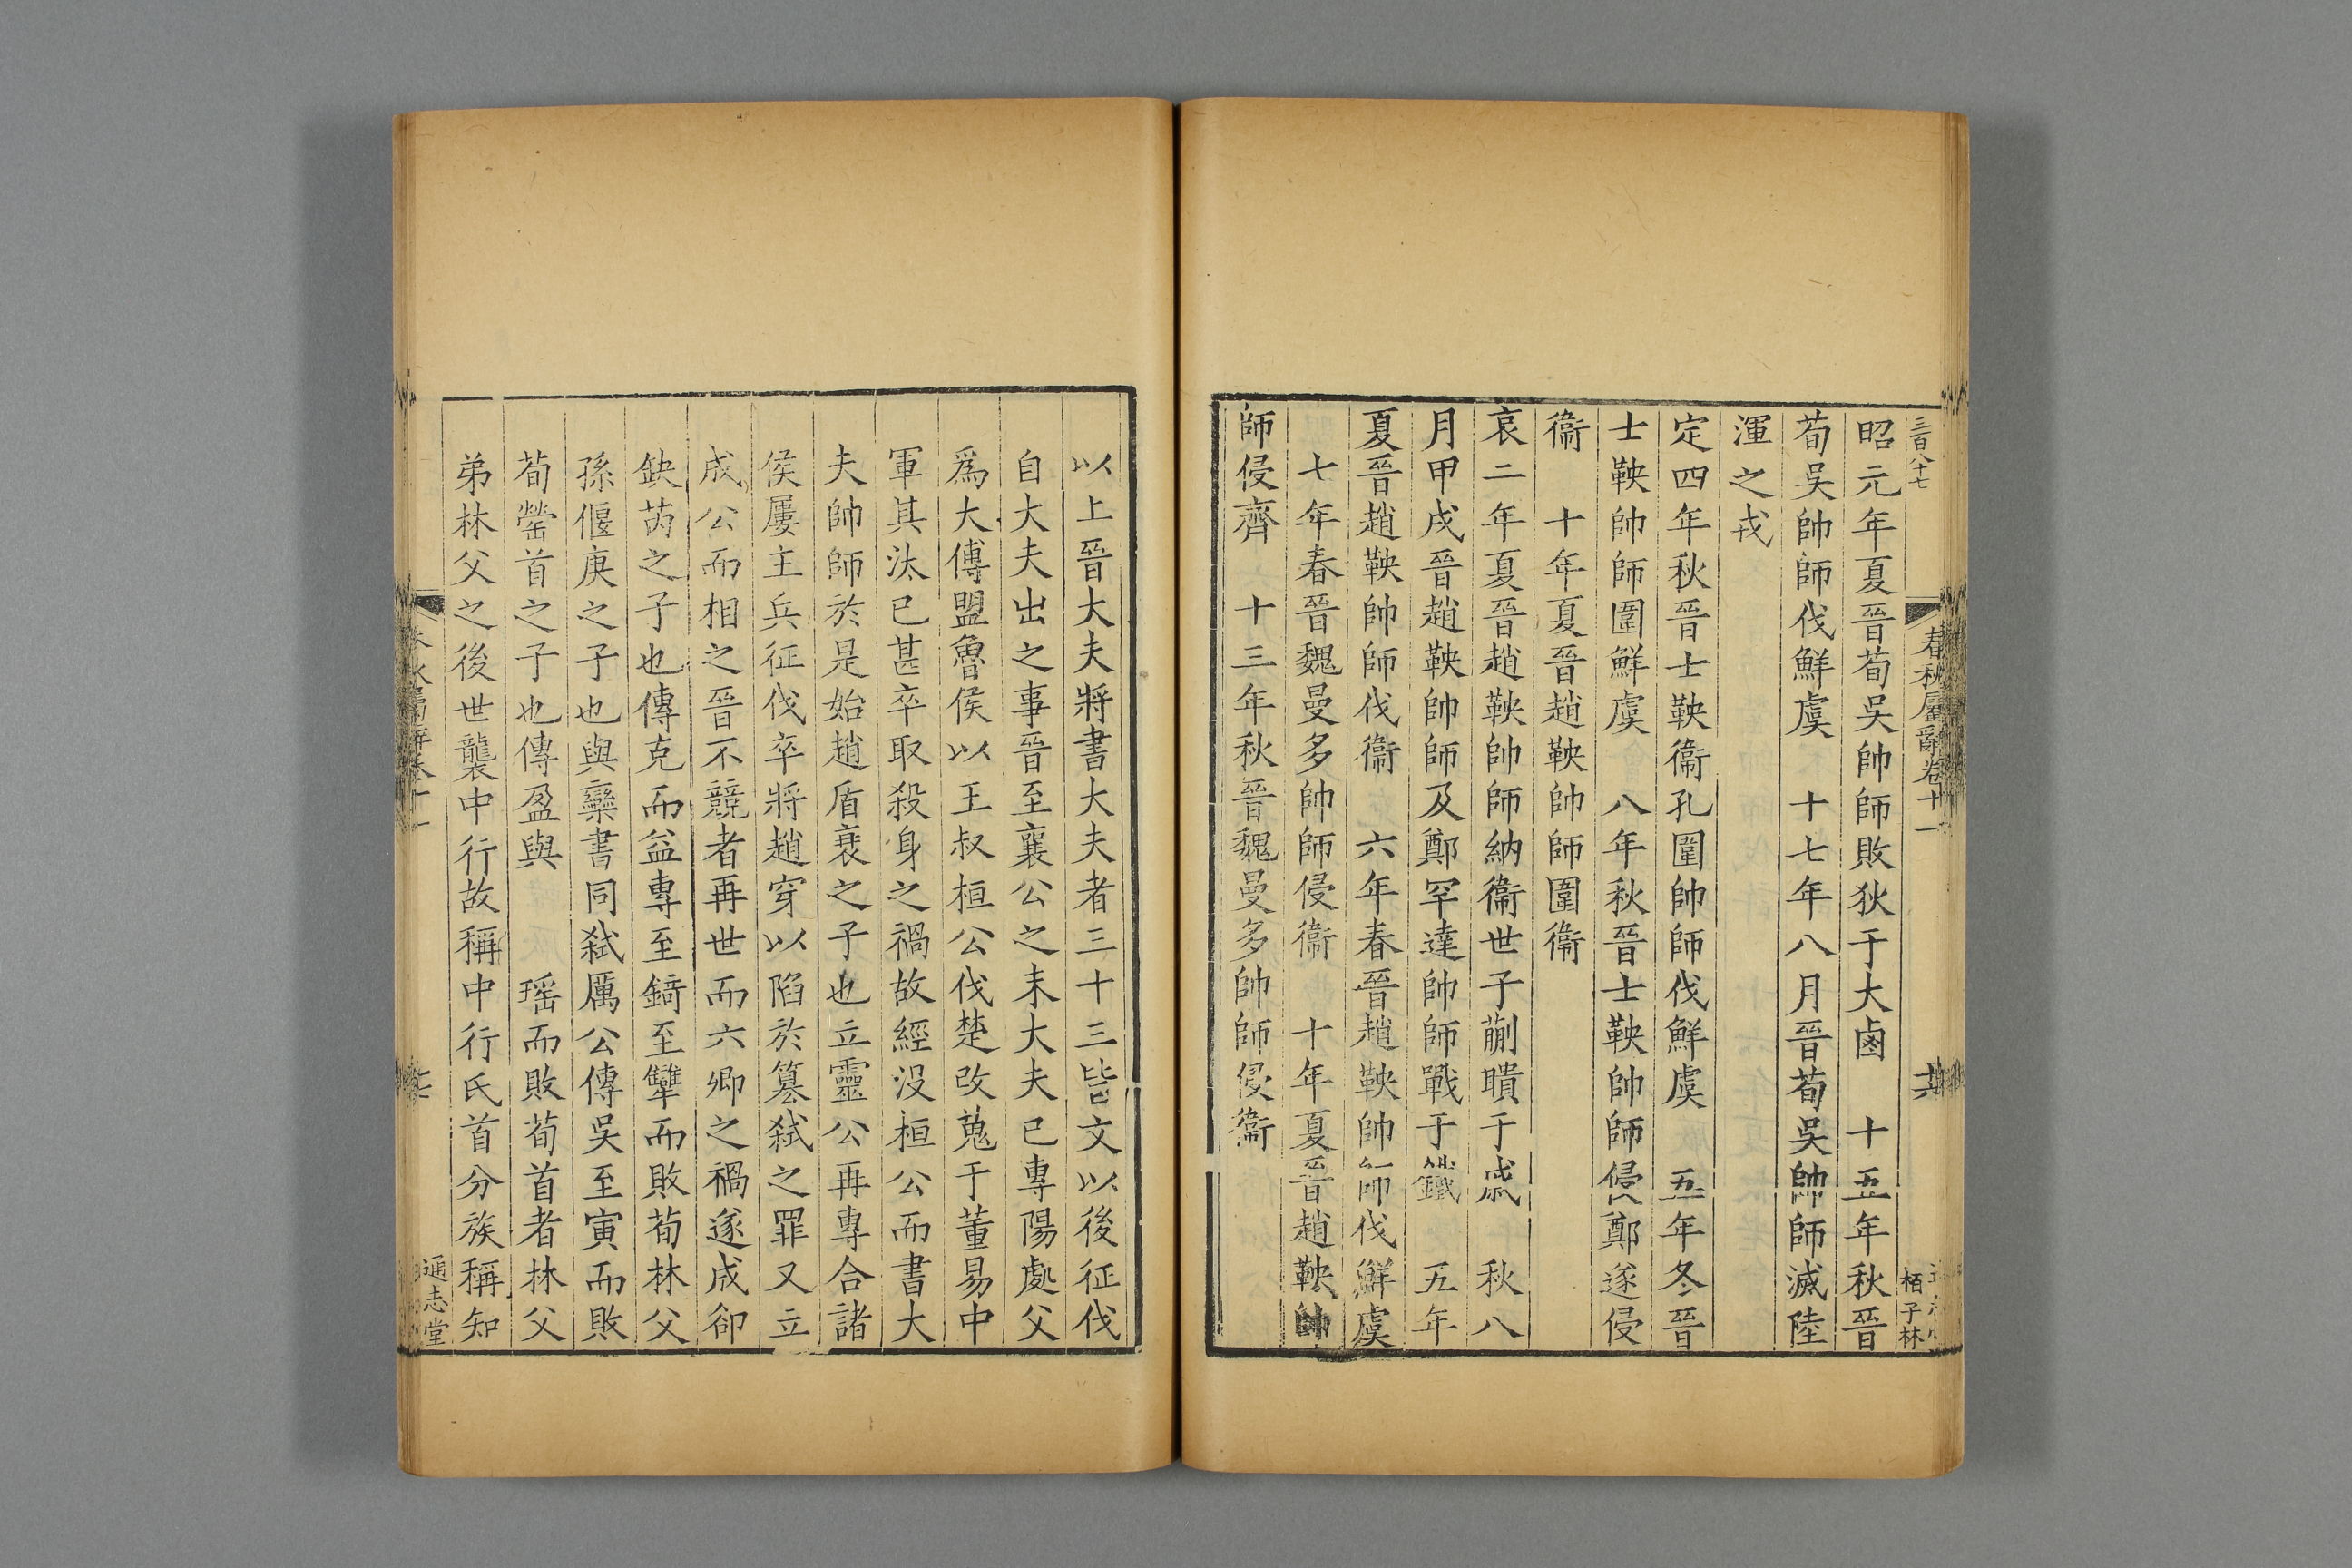 三百八十七
春秋屬辭卷十一
柏子林
昭元年夏晉荀吳帥師敗狄于大鹵　十五年秋晉
荀吳帥師伐鮮虞　十七年八月晉荀吳帥師滅陸
渾之戎
定四年秋晉士鞅衞孔圉帥師伐鮮虞　五年冬晉
士鞅帥師圍鮮虞　八年秋晉士鞅帥師侵鄭遂侵
衞　十年夏晉趙鞅帥師圍衞
哀二年夏晉趙鞅帥師納衞世子蒯聵于戚　秋八
月甲戌晉趙鞅帥師及鄭罕達帥師戰于鐵　五年
夏晉趙鞅帥師伐衞　六年春晉趙鞅帥師伐鮮虞
七年春晉魏曼多帥師侵衞　十年夏晉趙鞅帥
師侵齊　十三年秋晉魏曼多帥師侵衞
以上晉大夫將書大夫者三十三皆文以後征伐
自大夫出之事晉至襄公之末大夫已專陽處父
爲大傅盟魯侯以王叔桓公伐楚改蒐于董易中
軍其汰已甚卒取殺身之禍故經沒桓公而書大
夫帥師於是始趙盾衰之子也立靈公再專合諸
侯屢主兵征伐卒將趙穿以陷於簒弑之罪又立
成公而相之晉不競者再世而六卿之禍遂成郤
缺芮之子也傳克而益專至錡至犫而敗荀林父
孫偃庚之子也與欒書同弑厲公傳吳至寅而敗
荀罃首之子也傳盈與　瑤而敗荀首者林父
弟林父之後世襲中行故稱中行氏首分族稱知
通志堂